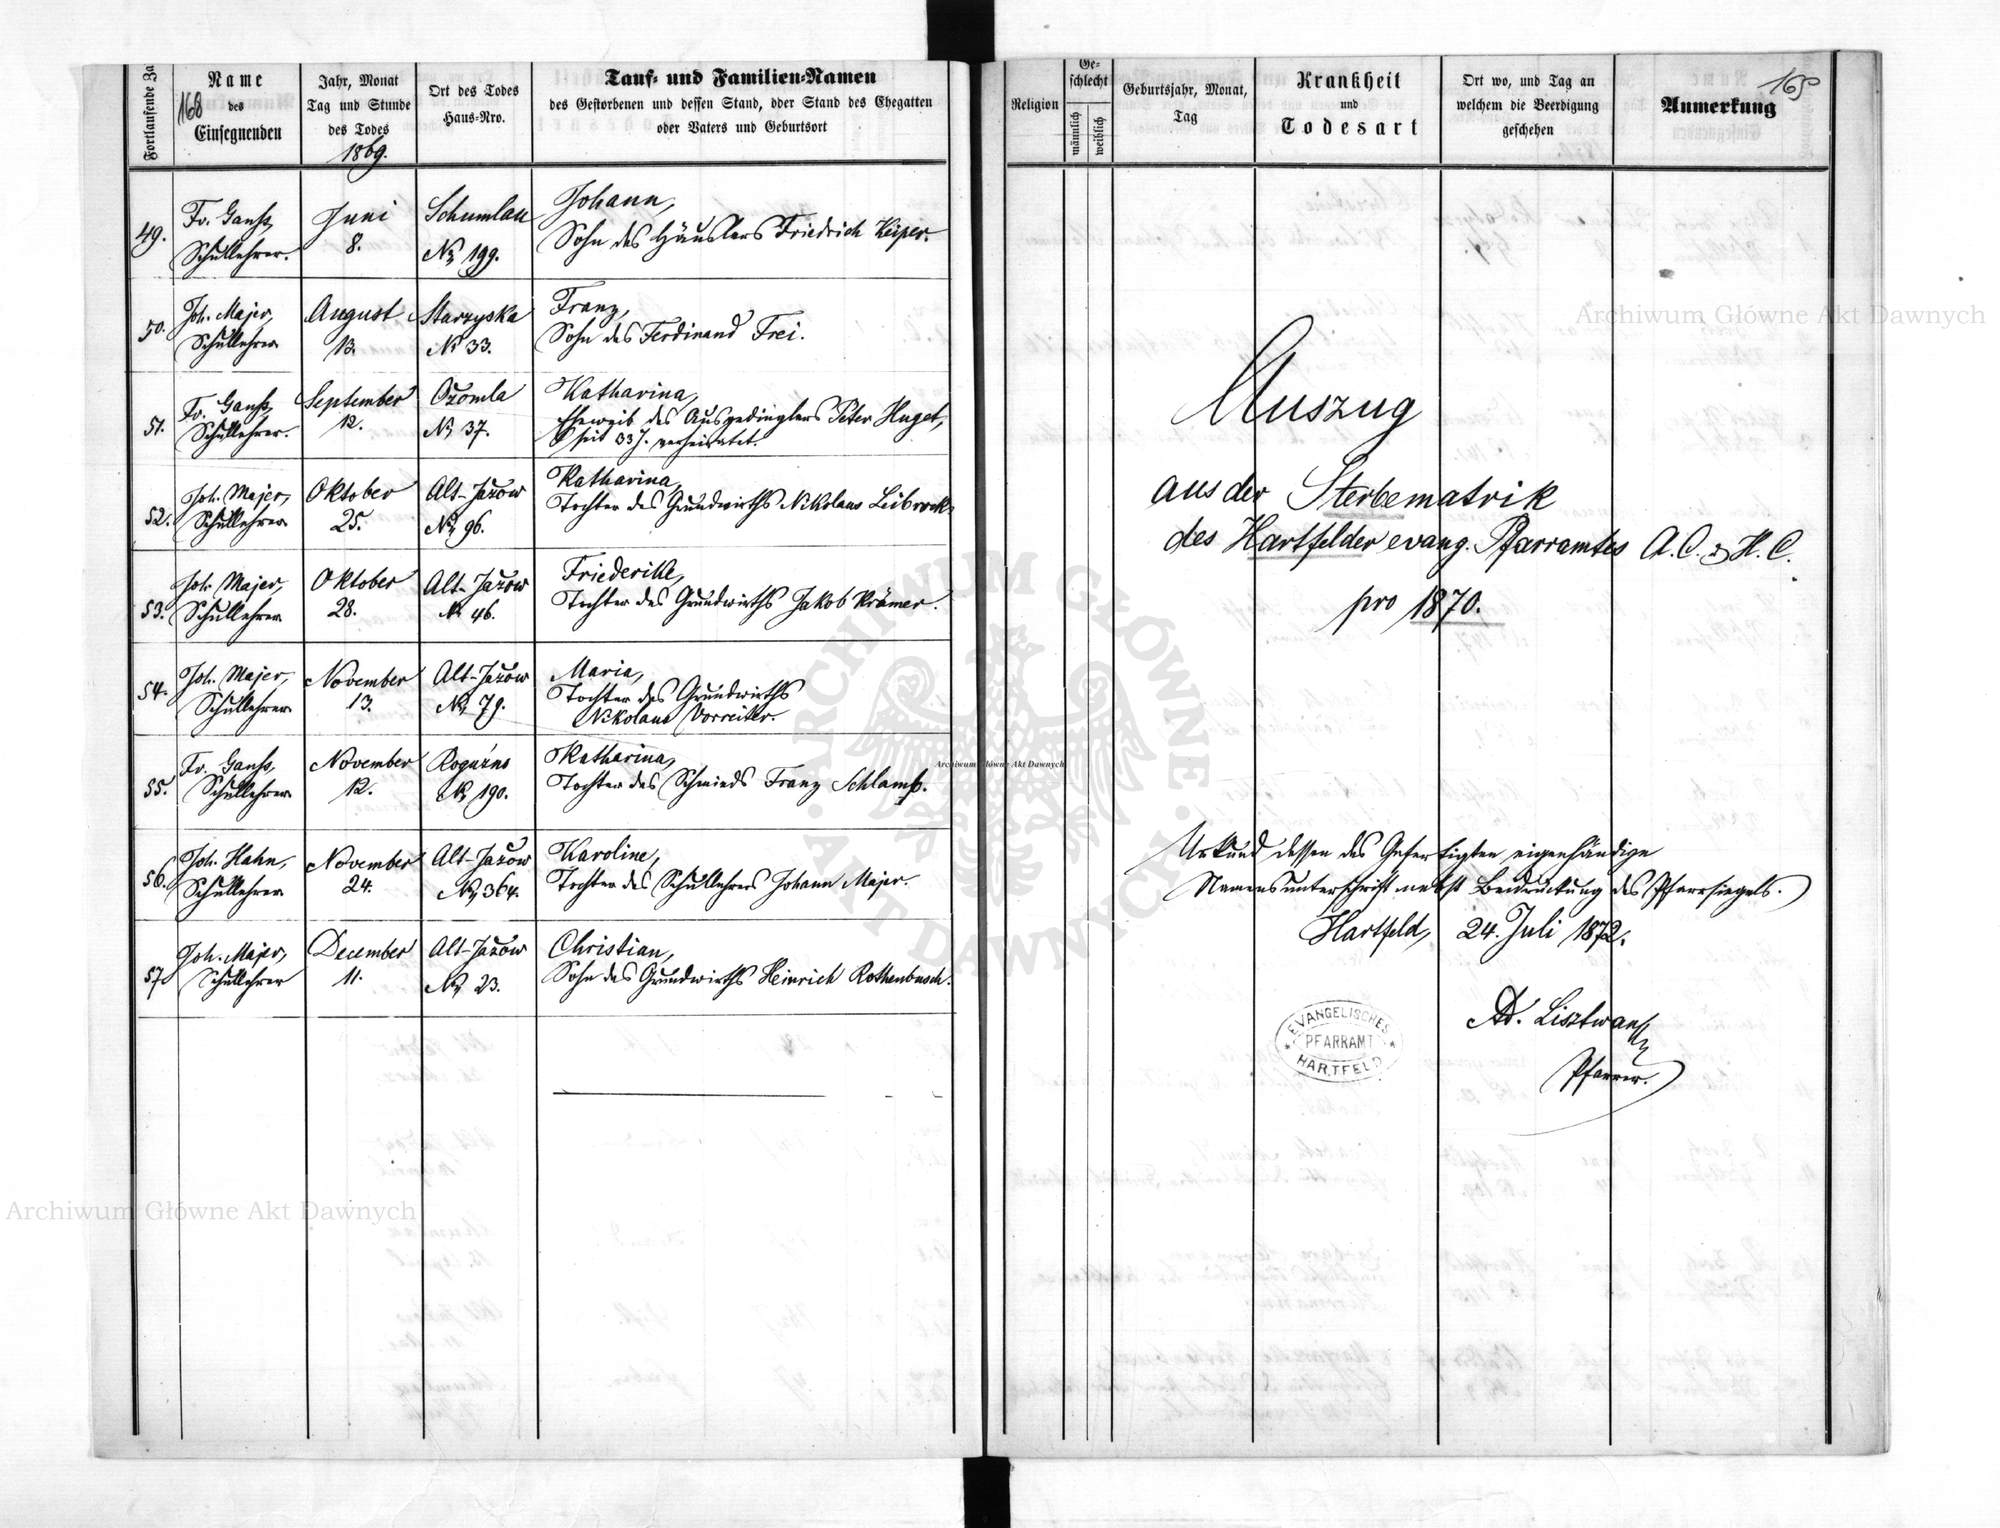 Fortlaufende Za
Name
des
Einsegnenden
168
Jahr, Monat
Tag und Stunde
des Todes
1869.
Ort des Todes
Haus=Nro.
Tauf= und Familien=Namen
des Gestorbenen und dessen Stand, oder Stand des Ehegatten
oder Vaters und Geburtsort
49.
Fr. Ganß,
Schullehrer.
Juni
8.
Schumlau
No 199.
Johann,
Sohn des Häuslers Friedrich Keiper.
50.
Joh. Majer,
Schullehrer
August
13.
Starzyska
No 33.
Franz,
Sohn des Ferdinand Frei.
51.
Fr. Ganß,
Schullehrer.
September
12.
Ožomla
No 37.
Katharina,
Eheweib des Ausgedinglers Peter Huget,
seit 33 J. verheiratet.
52.
Joh. Majer,
Schullehrer
Oktober
25.
Alt-Jažow
No 96.
Katharina,
Tochter des Grundwirths Nikolaus Leibrock.
53.
Joh. Majer,
Schullehrer
Oktober
28.
Alt-Jažow
No 46.
Friederike,
Tochter des Grundwirths Jakob Krämer.
54.
Joh. Majer,
Schullehrer
November
13.
Alt-Jažow
No 79.
Maria,
Tochter des Grundwirths
Nikolaus Vorreiter.
55.
Fr. Ganß,
Schullehrer
November
12.
Rogužno
No 190.
Katharina,
Tochter des Schmieds Franz Schlamp.
56.
Joh. Hahn,
Schullehrer
November
24.
Alt-Jažow
No 364.
Karoline,
Tochter des Schullehrers Johann Majer.
57
Joh. Majer,
Schullehrer
December
11.
Alt-Jažow
No 23.
Christian,
Sohn des Grundwirths Heinrich Rothenbusch.
Religion
Ge=
schlecht
männlich
weiblich
Geburtsjahr, Monat,
Tag
Krankheit
und
Todesart
Ort wo, und Tag an
welchem die Beerdigung
geschehen
Anmerkung
169
Auszug
aus der Sterbematrik
des Hartfelder evang. Pfarramtes A. C. & H. C.
pro 1870.
Urkund dessen des Gefertigten eigenhändige
Namensunterschrift nebst Beidrückung des Pfarrsiegels.
Hartfeld, 24. Juli 1872.
Ad. Lisztwan
Pfarrer.
EVANGELISCHES
PFARRAMT
HARTFELD
Archiwum Główne Akt Dawnych
Archiwum Główne Akt Dawnych
Archiwum Główne Akt Dawnych
ARCHIWUM GŁÓWNE
AKT DAWNYCH